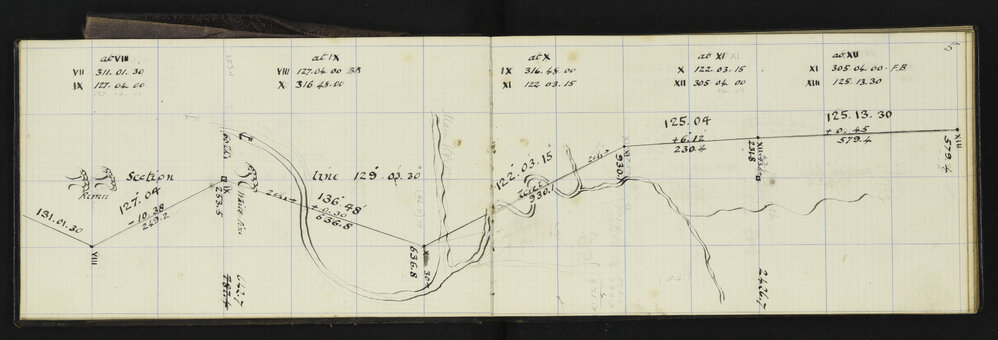 at VIII
VII 311.01.30
IX 127.04.00
at IX
VIII 127.04.00 BB
X 316.48.00
at X
IX 316.48.00
XI 122.03.15
at XI
X 122.03.15
XII 305.04.00
at XII
XI 305.04.00 F.B.
XIII 125.13.30
Section line 129.03.30
Rimu
131.01.30
VIII
127.04
-10.38
249.2
IX
253.5
136.48
+0.30
636.8
X
636.8
122.03.15
930.1
XI
125.04
+6.12
230.4
XII
231.8
2426.7
125.13.30
+0.45
579.4
XIII
579.4